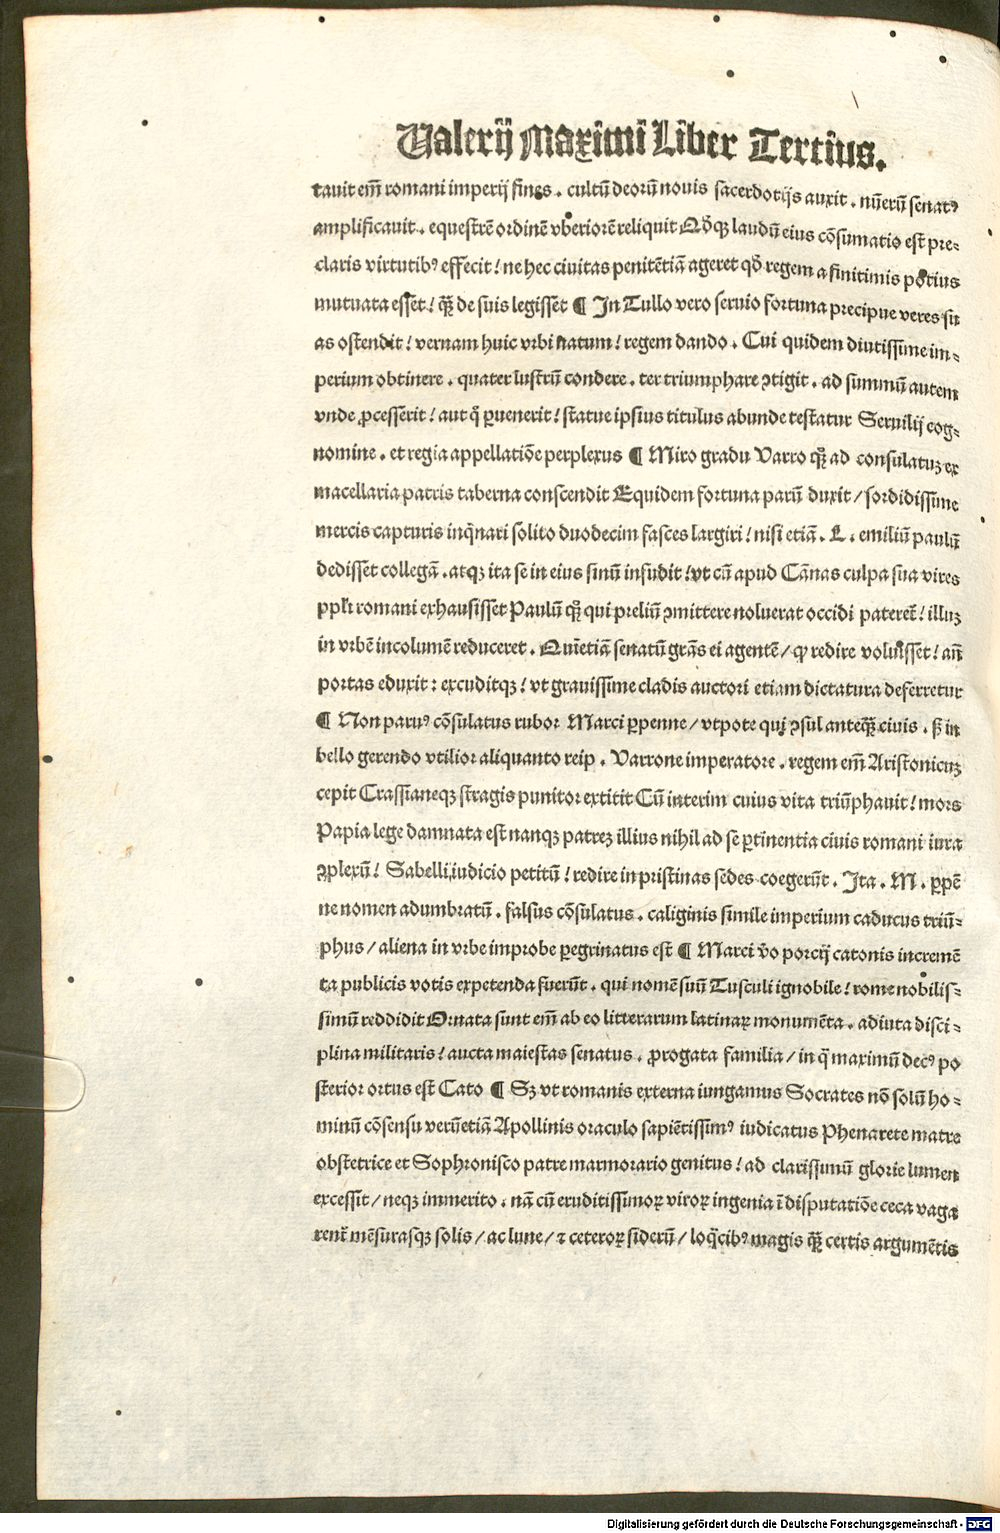 Valerij Maximi Liber Tertius.
tauit em̃ romani imperij fines . cultũ deorũ nouis sacerdotijs auxit . nũerũ senatꝰ
amplificauit . equestrẽ ordinẽ vberiorẽ reliquit Qð̃qꝫ laudũ eius cõsumatio est pre⸗
claris virtutibꝰ effecit! ne hec ciuitas penitẽtiã ageret qð regem a finitimis potius
mutuata esset! q̃ꝫ de suis legisset ¶ In Tullo vero seruio fortuna precipue veres su
as ostendit! vernam huic vrbi natum! regem dando . Cui quidem diutissime im⸗
perium obtinere . quater lustrũ condere . ter triumphare ꝯtigit . ad summũ autem
vnde ꝓcesserit! aut q̃ ꝑuenerit! statue ipsius titulus abunde testatur Seruilij cog⸗
nomine . et regia appellatiõe perplexus ¶ Miro gradu Varro qꝫ̃ ad consulatuꝫ ex
macellaria patris taberna conscendit Equidem fortuna parũ duxit / sordidissime
mercis capturis inq̃nari solito duodecim fasces largiri! nisi etiã . L . emiliũ paulũ
dedisset collegã . atqꝫ ita se in eius sinũ insudit! vt cũ apud Cãnas culpa sua vires
ppli romani exhausisset Paulũ qꝫ̃ qui preliũ ꝯmittere noluerat occidi pateret̃! illuꝫ
in vrbẽ incolumẽ reduceret . Quĩetiã senatũ grãs ei agentẽ / ꝙ redire voluisset! añ
portas eduxit : excuditqꝫ! vt grauissime cladis auctori etiam dictatura deferretur
¶ Non paruꝰ cõsulatus rubor Marci ꝑpenne / vtpote qui ꝯsul anteq̃ꝫ ciuis . sꝫ in
bello gerendo vtilior aliquanto reip . Varrone imperatore . regem em̃ Aristonicuꝫ
cepit Crassianeqꝫ stragis punitor extitit Cũ interim cuius vita triũphauit! mors
Papia lege damnata est nanqꝫ patreꝫ illius nihil ad se ꝑtinentia ciuis romani iura
ꝯplexũ! Sabelli iudicio petitũ! redire in pristinas sedes coegerũt . Ita . M . ꝑpẽ
ne nomen adumbratũ . falsus cõsulatus . caliginis simile imperium caducus triũ⸗
phus / aliena in vrbe improbe ꝑegrinatus est ¶ Marci ṽo porcij catonis incremẽ
ta publicis votis expetenda fuerũt . qui nomẽ suũ Tusculi ignobile! rome nobilis⸗
simũ reddidit Ornata sunt em̃ ab eo litterarum latinaꝝ monumẽta . adiuta disci⸗
plina militaris! aucta maiestas senatus . ꝓrogata familia / in q̃ maximũ decꝰ po
sterior ortus est Cato ¶ Sꝫ vt romanis externa iungamus Socrates nõ solũ ho⸗
minũ cõsensu verũetiã Apollinis oraculo sapiẽtissimꝰ iudicatus Phenarete matre
obstetrice et Sophronisco patre marmorario genitus! ad clarissimũ glorie lumen
excessit / neqꝫ immerito . nã cũ eruditissimoꝝ viroꝝ ingenia ĩ disputatiõe ceca vaga
rent̃ mẽsurasqꝫ solis / ac lune / ⁊ ceteroꝝ siderũ / loq̃cibꝰ magis q̃ꝫ certis argumẽtis
Digitalisierung gefördert durch die Deutsche Forschungsgemeinschaft - DFG